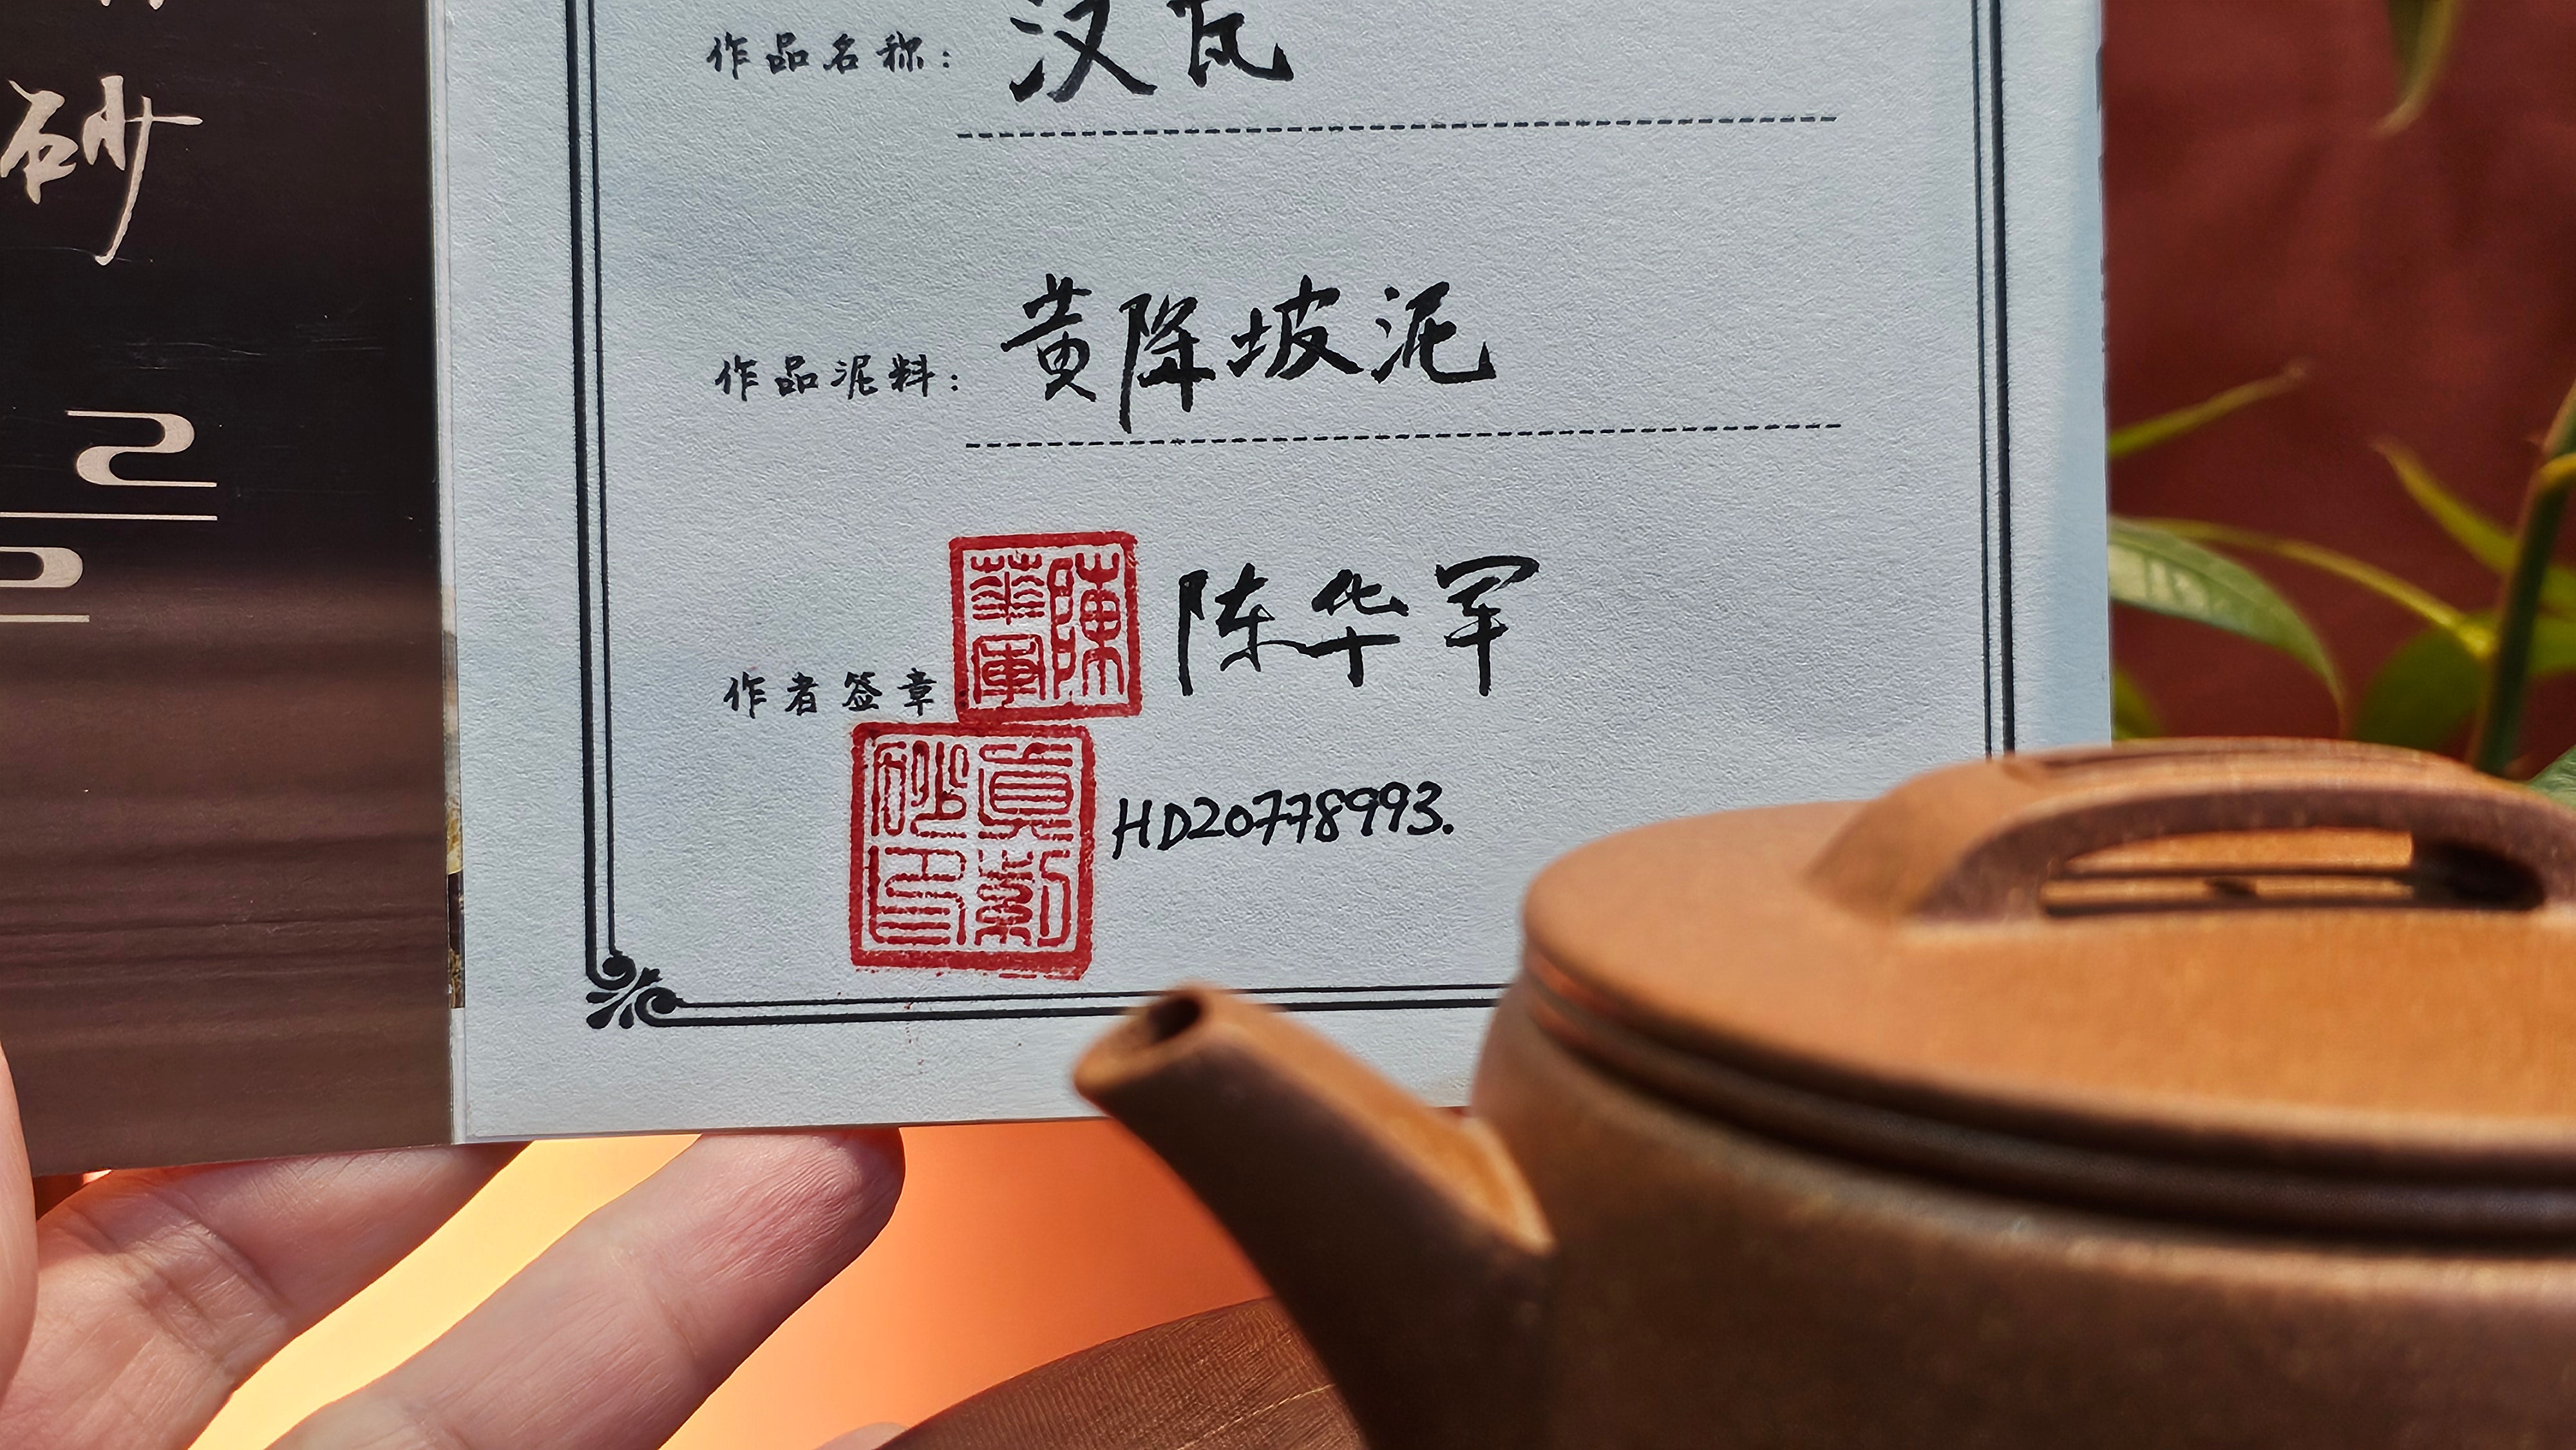 砂
作品名称: 汉瓦
作品泥料: 黄降坡泥
作者签章 陳華軍 陈华军
HD20778993.